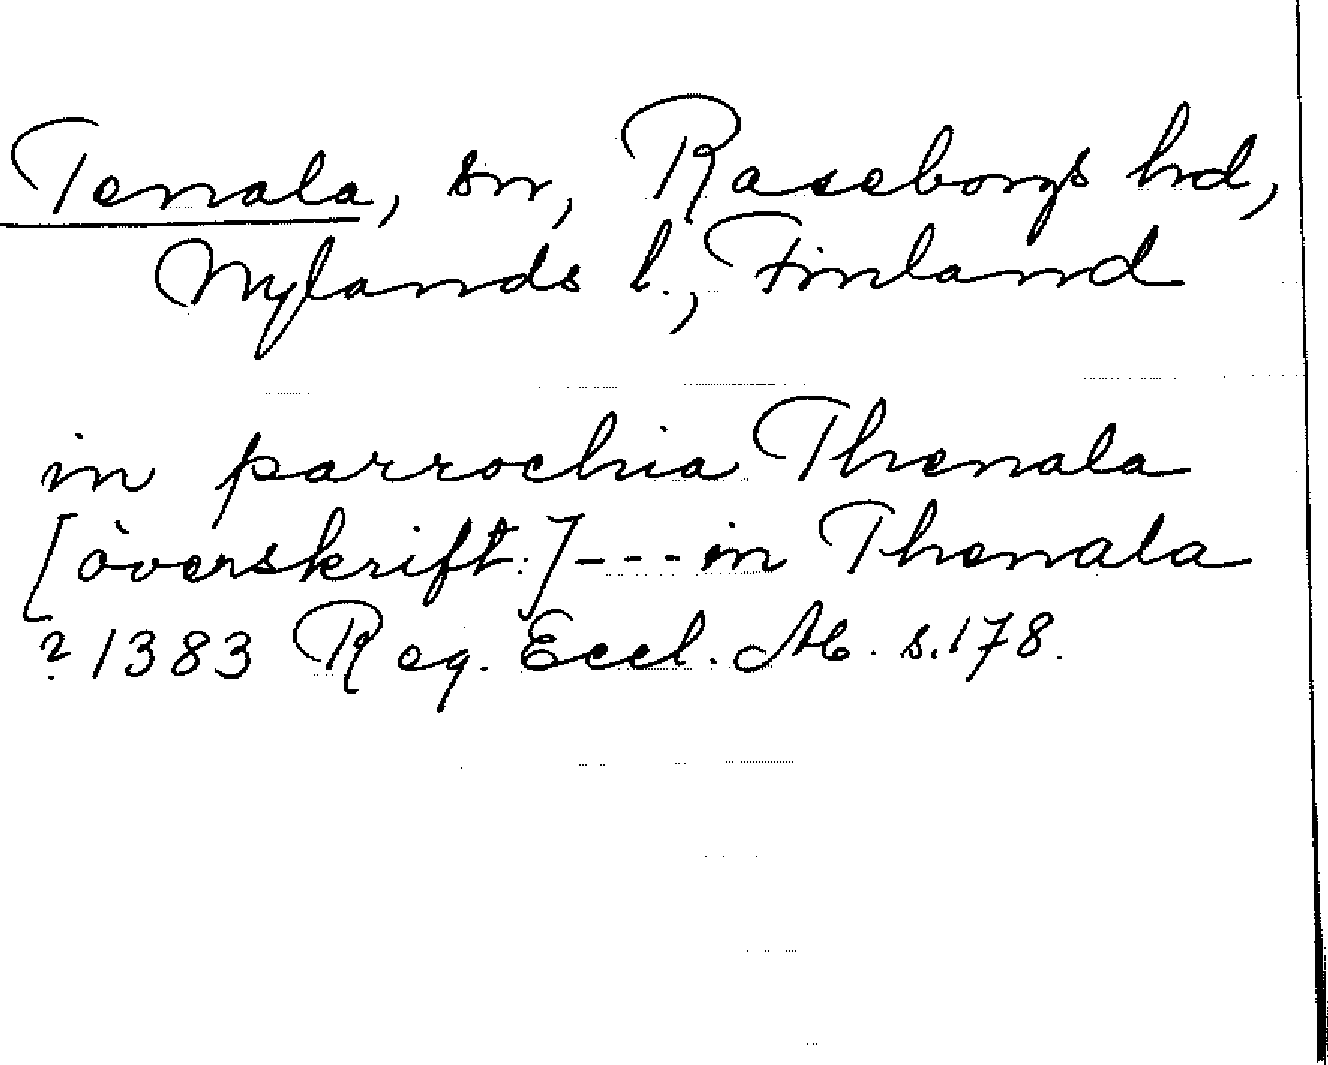 Tenala, sn, Raseborgs hd,
Nylands l., Finland
in parrochia Thenala
[överskrift.]--- in Thenala
? 1383 Reg. Eccl. Ab. s. 178.